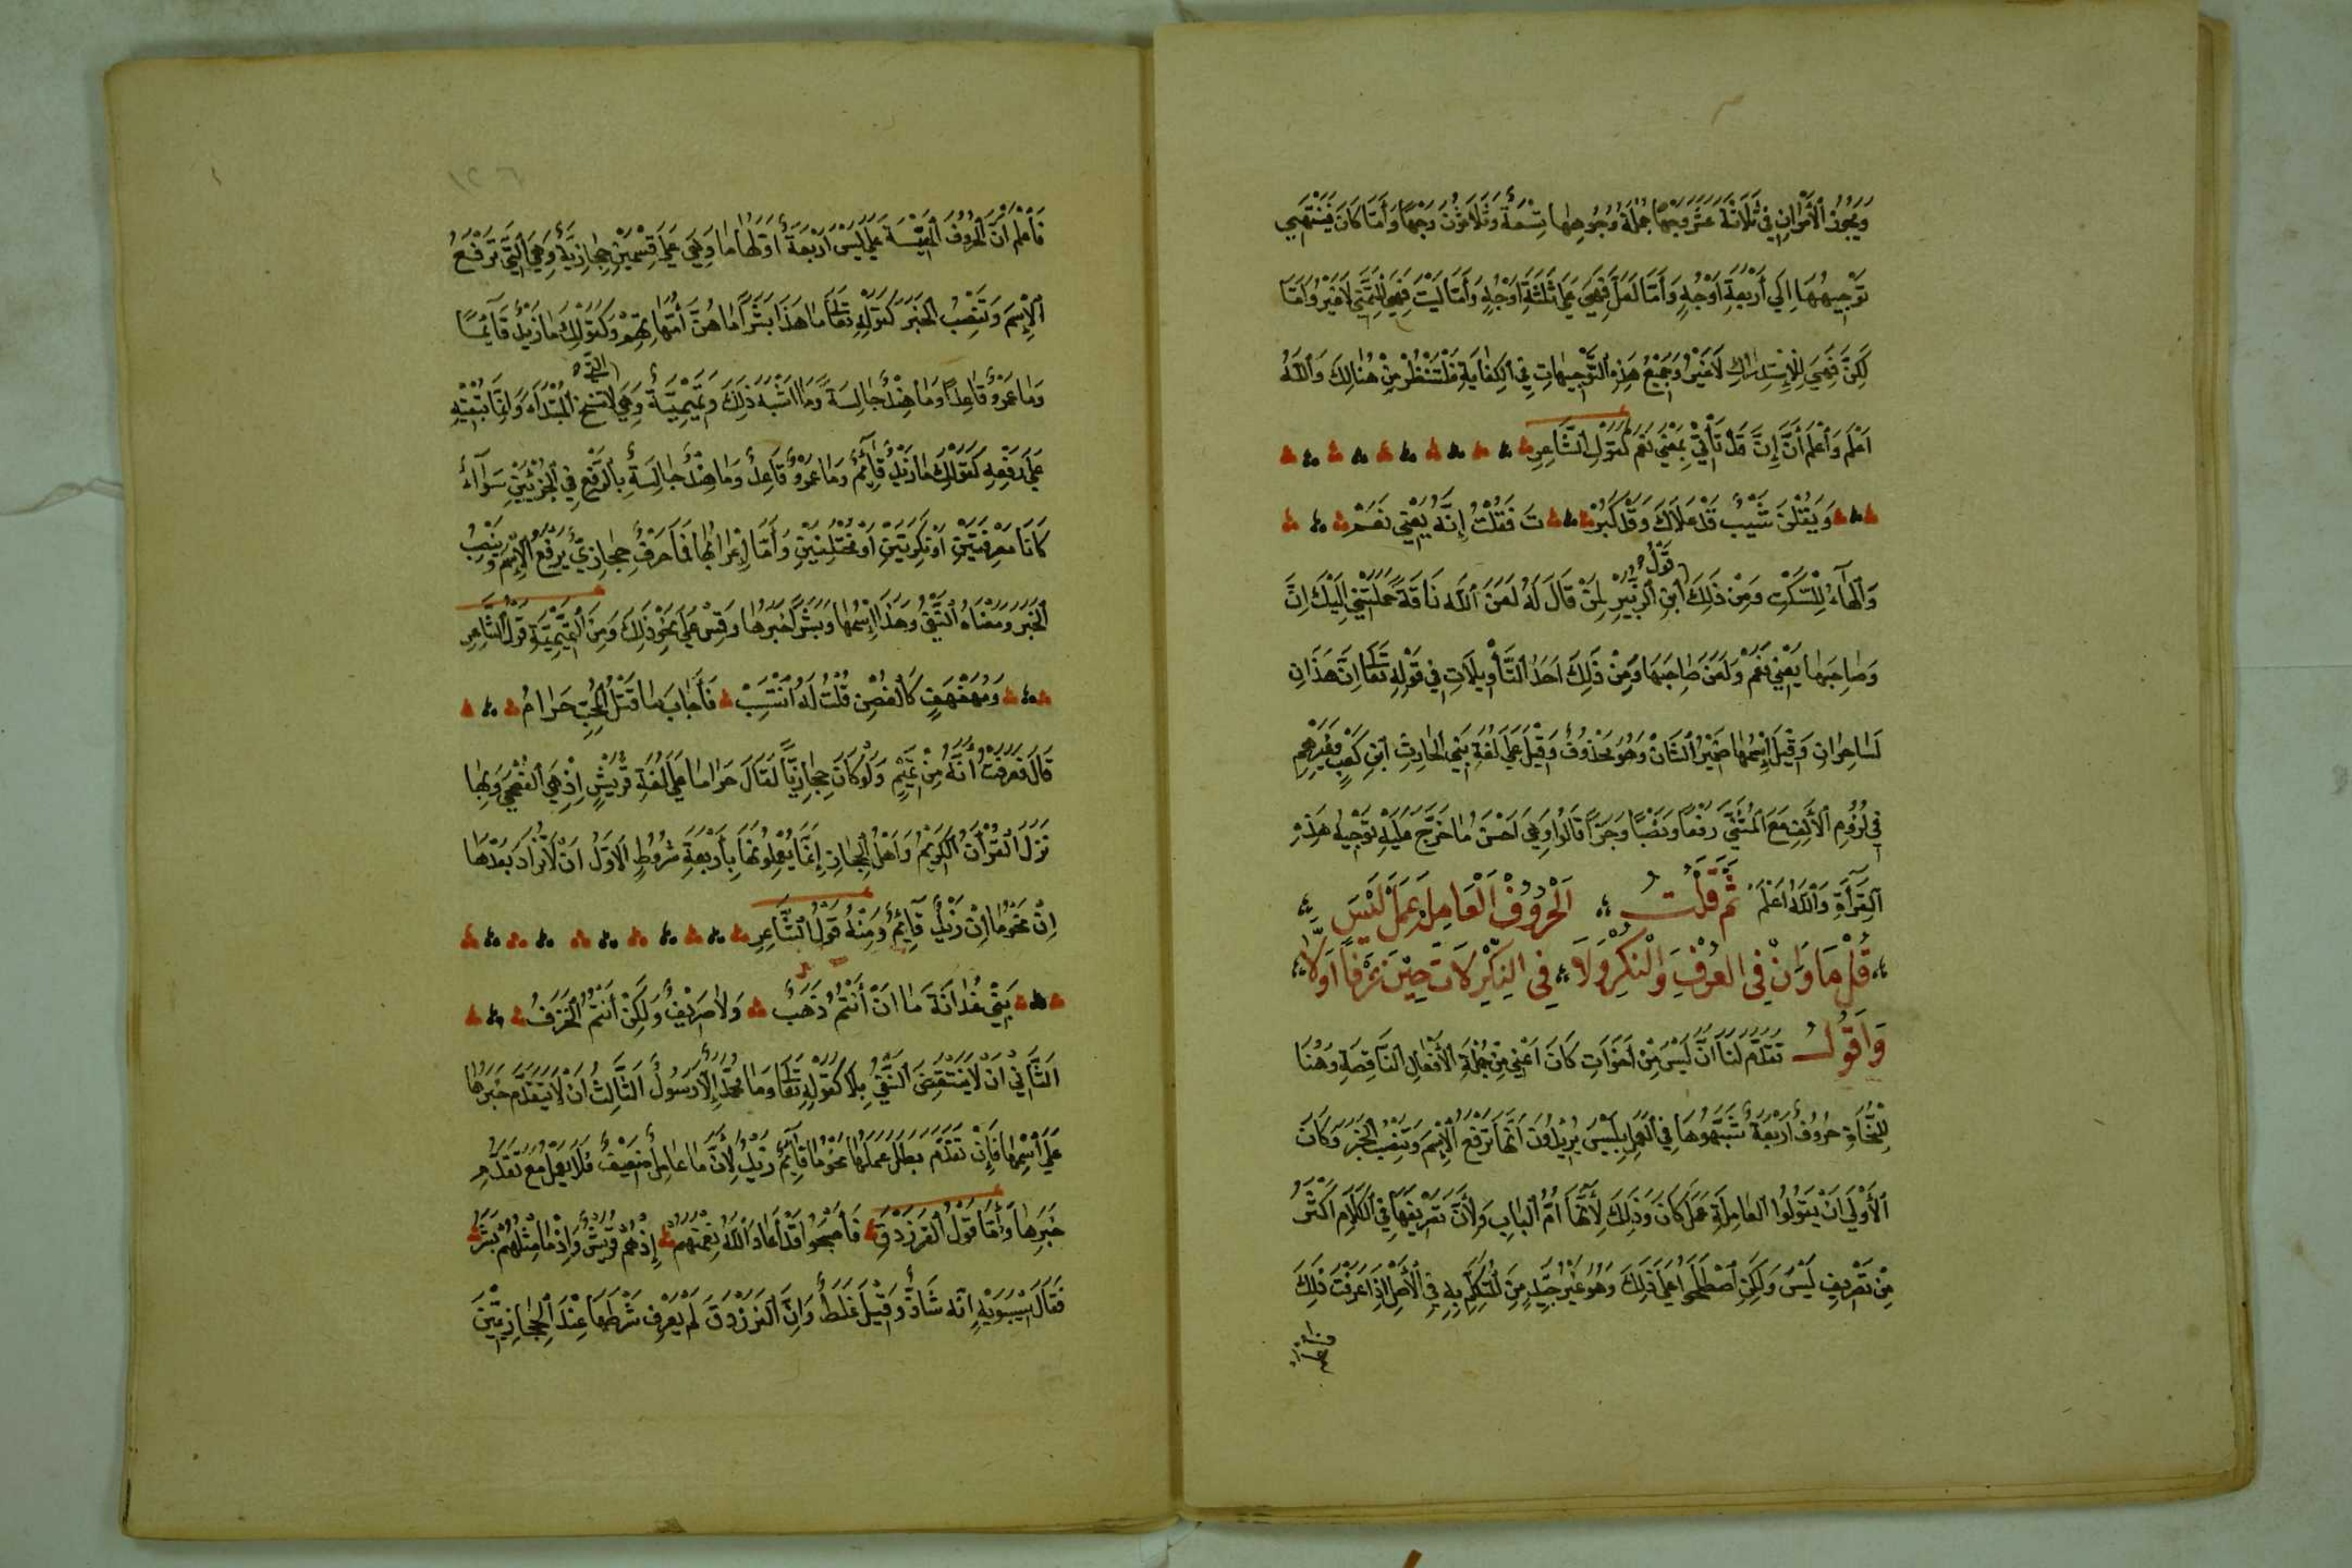 وَيَجُوزُ الْأَمْرَانِ فِي ثَلَاثَةَ عَشَرَ وَجْهًا جُمْلَةُ وُجُوهِهَا تِسْعَةٌ وَثَلَاثُونَ وَجْهًا وَأَمَّا كَانَ فَيَنْتَهِي
تَوْجِيهُهَا إِلَى أَرْبَعَةِ أَوْجُهٍ وَأَمَّا لَعَلَّ فَهِيَ عَلَى ثَلَثَةِ أَوْجُهٍ وَأَمَّا لَيْتَ فَهِيَ لِلتَّمَنِّي لَا غَيْرُ وَأَمَّا
لَكِنَّ فَهِيَ لِلْإِسْتِدْرَاكِ لَا غَيْرُ وَجَمِيعُ هَذِهِ التَّوْجِيهَاتِ فِي الْكِفَايَةِ فَلْتُنْظُرْ مِنْ هُنَالِكَ وَاللَّهُ
أَعْلَمُ وَاعْلَمْ أَنَّ إِنَّ قَدْ تَأْتِي بِمَعْنَى نَعَمْ كَقَوْلِ الشَّاعِرِ
وَيَقُلْنَ شَيْبٌ قَدْ عَلَاكَ وَقَدْ كَبِرْ تَ فَقُلْتُ إِنَّهْ يَعْنِي نَعَمْ
وَالْهَاءُ لِلسَّكْتِ وَمِنْ ذَلِكَ قَوْلُ ابْنِ الزُّبَيْرِ لِمَنْ قَالَ لَهُ لَعَنَ اللَّهُ نَاقَةً حَمَلَتْنِي إِلَيْكَ إِنَّ
وَصَاحِبَهَا يَعْنِي نَعَمْ وَلَعَنَ صَاحِبَهَا وَمِنْ ذَلِكَ أَحَدُ التَّأْوِيلَاتِ فِي قَوْلِهِ تَعَالَى إِنَّ هَذَانِ
لَسَاحِرَانِ وَقِيلَ إِسْمُهَا ضَمِيرُ الشَّانْ وَهُوَ مَحْذُوفٌ وَقِيلَ عَلَى لُغَةِ بَنِي الْحَارِثِ ابْنِ كَعْبٍ وَغَيْرِهِمْ
فِي لُزُومِ الْأَلِفِ مَعَ الْمُثَنَّى رَفْعًا وَنَصْبًا وَجَرًّا قَالُوا وَهِيَ أَحْسَنُ مَا خُرِّجَ عَلَيْهِ تَوْجِيهُ هَذِهِ
الْقِرَاءَةِ وَاللَّهُ أَعْلَمُ ثُمَّ قُلْتُ الْحُرُوفُ الْعَامِلَةُ عَمَلَ لَيْسَ
قُلْ مَا وَإِنْ فِي الْعُرْفِ وَالنُّكْرِ وَلَا فِي النُّكْرِ لَاتَ حِينَ عُرْفًا أَوْ لَا
وَأَقُولُ تَقَدَّمَ لَنَا أَنَّ لَيْسَ مِنْ أَخَوَاتِ كَانَ أَعْنِي مِنْ جُمْلَةِ الْأَفْعَالِ النَّاقِصَةِ وَهُنَا
لِلنُّحَاةِ حُرُوفٌ أَرْبَعَةٌ شَبَّهُوهَا فِي الْعَمَلِ بِلَيْسَ يُرِيدُونَ أَنَّهَا تَرْفَعُ الْإِسْمَ وَتَنْصِبُ الْخَبَرَ وَكَانَ
الْأَوْلَى أَنْ يَقُولُوا الْعَامِلَةَ عَمَلَ كَانَ وَذَلِكَ لِأَنَّهَا أُمُّ الْبَابِ وَلِأَنَّ تَصْرِيفَهَا فِي الْكَلَامِ أَكْثَرُ
مِنْ تَصْرِيفِ لَيْسَ وَلَكِنِ اصْطَلَحُوا عَلَى ذَلِكَ وَهُوَ غَيْرُ جَيِّدٍ مِنَ الْمُتَكَلِّمِ بِهِ فِي الْأَصْلِ إِذَا عَرَفْتَ ذَلِكَ
فَاعْلَمْ أَنَّ الْحُرُوفَ الْمَقِيسَةَ عَلَى لَيْسَ أَرْبَعَةٌ أَوَّلُهَا مَا وَهِيَ عَلَى قِسْمَيْنِ حِجَازِيَّةٌ وَهِيَ الَّتِي تَرْفَعُ
الْإِسْمَ وَتَنْصِبُ الْخَبَرَ كَقَوْلِهِ تَعَالَى مَا هَذَا بَشَرًا مَا هُنَّ أُمَّهَاتِهِمْ وَكَقَوْلِكَ مَا زَيْدٌ قَائِمًا
وَمَا عَمْرٌو قَاعِدًا وَمَا هِنْدٌ جَالِسَةً وَمَا اشْبَهَ ذَلِكَ وَتَمِيمِيَّةٌ وَهِيَ الَّتِي لَا تَنْسَخُ الْمُبْتَدَاءَ وَإِنَّمَا تُبْقِيهِ
عَلَى رَفْعِهِ كَقَوْلِكَ مَا زَيْدٌ قَائِمٌ وَمَا عَمْرٌو قَاعِدٌ وَمَا هِنْدٌ جَالِسَةٌ بِالرَّفْعِ فِي الْجُزْئَيْنِ سَوَآءٌ
كَانَا مَعْرِفَتَيْنِ أَوْ نَكِرَتَيْنِ أَوْ مُخْتَلِفَيْنِ وَأَمَّا إِعْرَابُهَا فَمَا حَرْفٌ حِجَازِيٌّ يَرْفَعُ الْإِسْمَ وَيَنْصِبُ
الْخَبَرَ وَمَعْنَاهُ النَّفْيُ وَهَذَا إِسْمُهَا وَبَشَرًا خَبَرُهَا وَقِسْ عَلَى نَحْوِ ذَلِكَ وَمِنَ التَّمِيمِيَّةِ قَوْلُ الشَّاعِرِ
وَمُهَفْهَفٍ كَالْغُصْنِ قُلْتُ لَهُ انْتَسِبْ فَأَجَابَ مَا قَتْلُ الْمُحِبِّ حَرَامُ
قَالَ فَعَرَفْتُ أَنَّهُ مِنْ تَمِيمٍ وَلَوْ كَانَ حِجَازِيًّا لَقَالَ حَرَامًا عَلَى لُغَةِ قُرَيْشٍ إِذْ هِيَ الْفُصْحَى وَبِهَا
نَزَلَ الْقُرْآنُ الْكَرِيمُ وَأَهْلُ الْحِجَازِ إِنَّمَا يُعْمِلُونَهَا بِأَرْبَعَةِ شُرُوطٍ الْأَوَّلُ أَنْ لَا تُزَادَ بَعْدَهَا
إِنْ نَحْوُ مَا إِنْ زَيْدٌ قَآئِمٌ وَمِنْهُ قَوْلُ الشَّاعِرِ
بَنِي غُدَانَةَ مَا انْ أَنْتُمُ ذَهَبٌ وَلَا صَرِيفٌ وَلَكِنْ أَنْتُمُ الْخَزَفُ
الثَّانِي أَنْ لَا يَنْتَقِضَ النَّفْيُ بِإِلَّا كَقَوْلِهِ تَعَالَى وَمَا مُحَمَّدٌ إِلَّا رَسُولٌ الثَّالِثُ أَنْ لَا يَتَقَدَّمَ خَبَرُهَا
عَلَى اسْمِهَا فَإِنْ تَقَدَّمَ بَطَلَ عَمَلُهَا نَحْوُ مَا قَآئِمٌ زَيْدٌ لِأَنَّ مَا عَامِلٌ ضَعِيفٌ فَلَا يَعْمَلُ مَعَ تَقَدُّمِ
خَبَرِهَا وَأَمَّا قَوْلُ الْفَرَزْدَقِ فَأَصْبَحُوا قَدْ أَعَادَ اللَّهُ نِعْمَتَهُمْ إِذْ هُمْ قُرَيْشٌ وَإِذْ مَا مِثْلُهُمْ بَشَرُ
فَقَالَ سِيبَوَيْهِ إِنَّهُ شَاذٌّ وَقِيلَ غَلَطٌ وَإِنَّ الْفَرَزْدَقَ لَمْ يَعْرِفْ شَرْطَهَا عِنْدَ الْحِجَازِيِّينَ